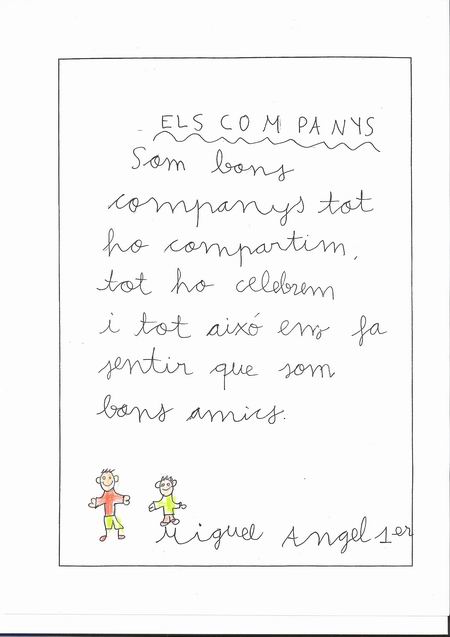 ELS COMPANYS
Som bons
companys tot
ho compartim,
tot ho celebrem
i tot aixó ens fa
sentir que som
bons amics.
Miguel Angel 1er